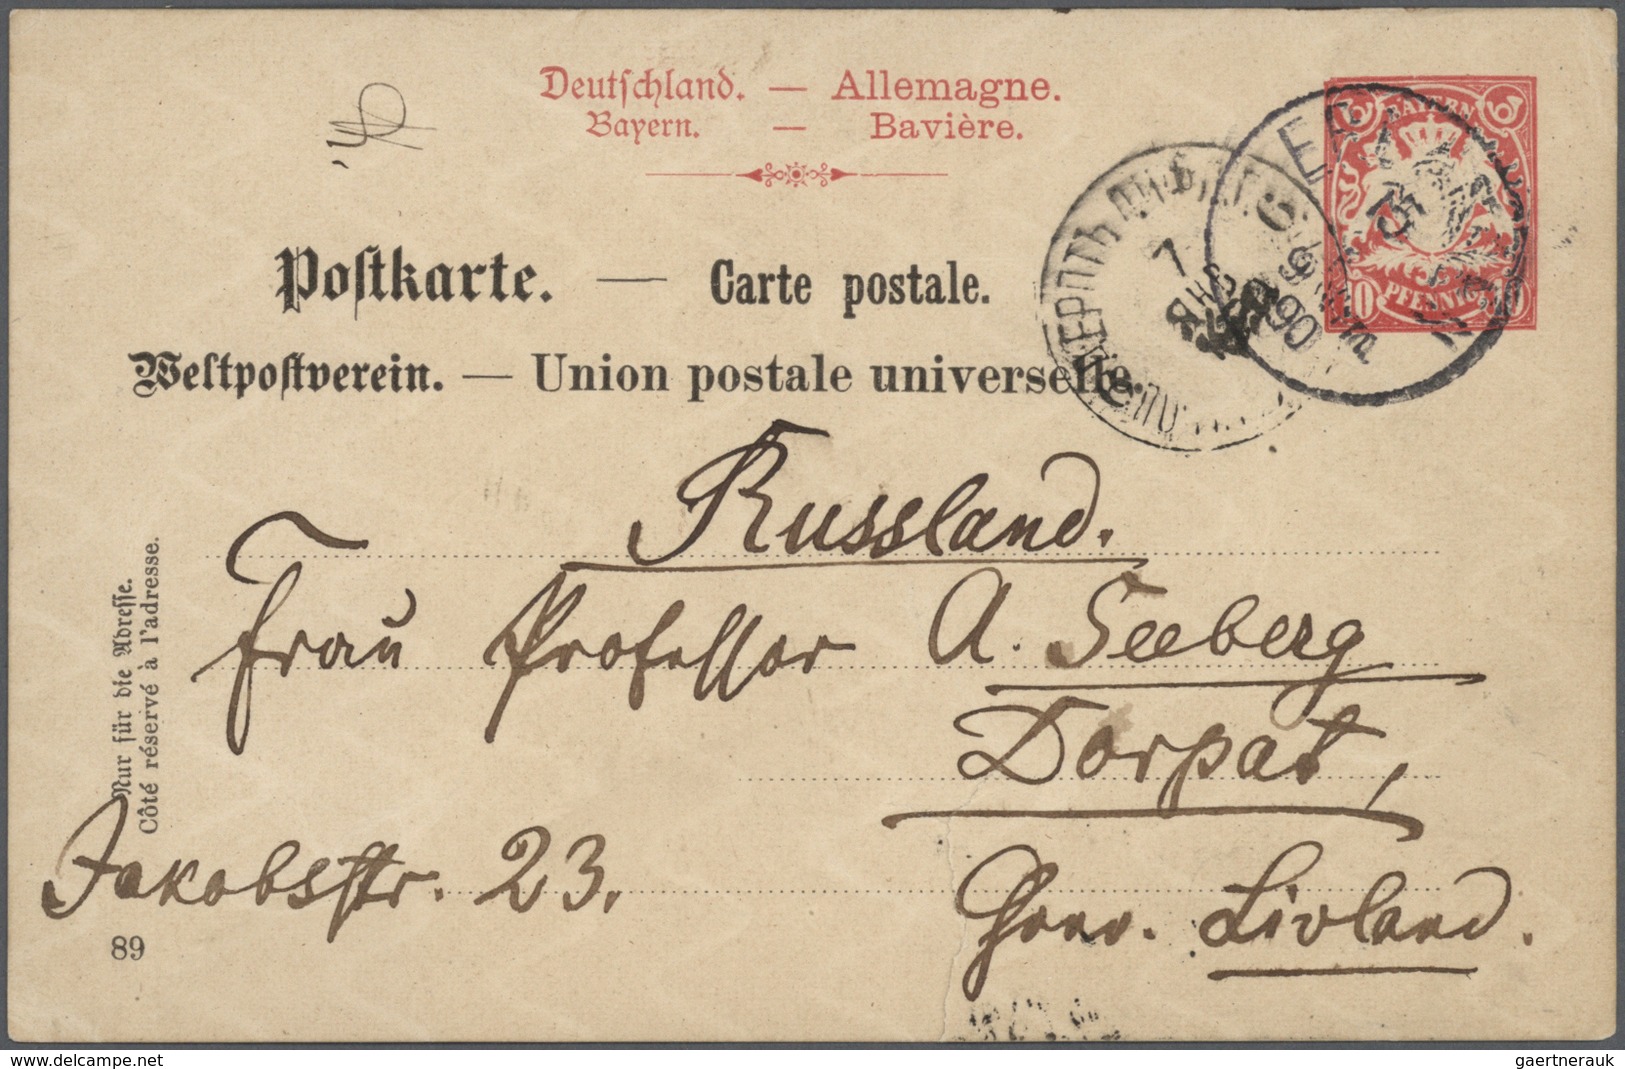 Deutschland. — Allemagne.
Bayern. — Bavière.
BAYERN
PFENNIG
Postkarte. — Carte postale.
Weltpostverein. — Union postale universelle.
7
ЯНВ
6
90
Russland.
Frau Professor A. Seeberg
Dorpat,
Jakobsstr. 23.
Gouv. Livland.
Nur für die Adresse.
Côté réservé à l'adresse.
89
www.delcampe.net
gaertnerauk